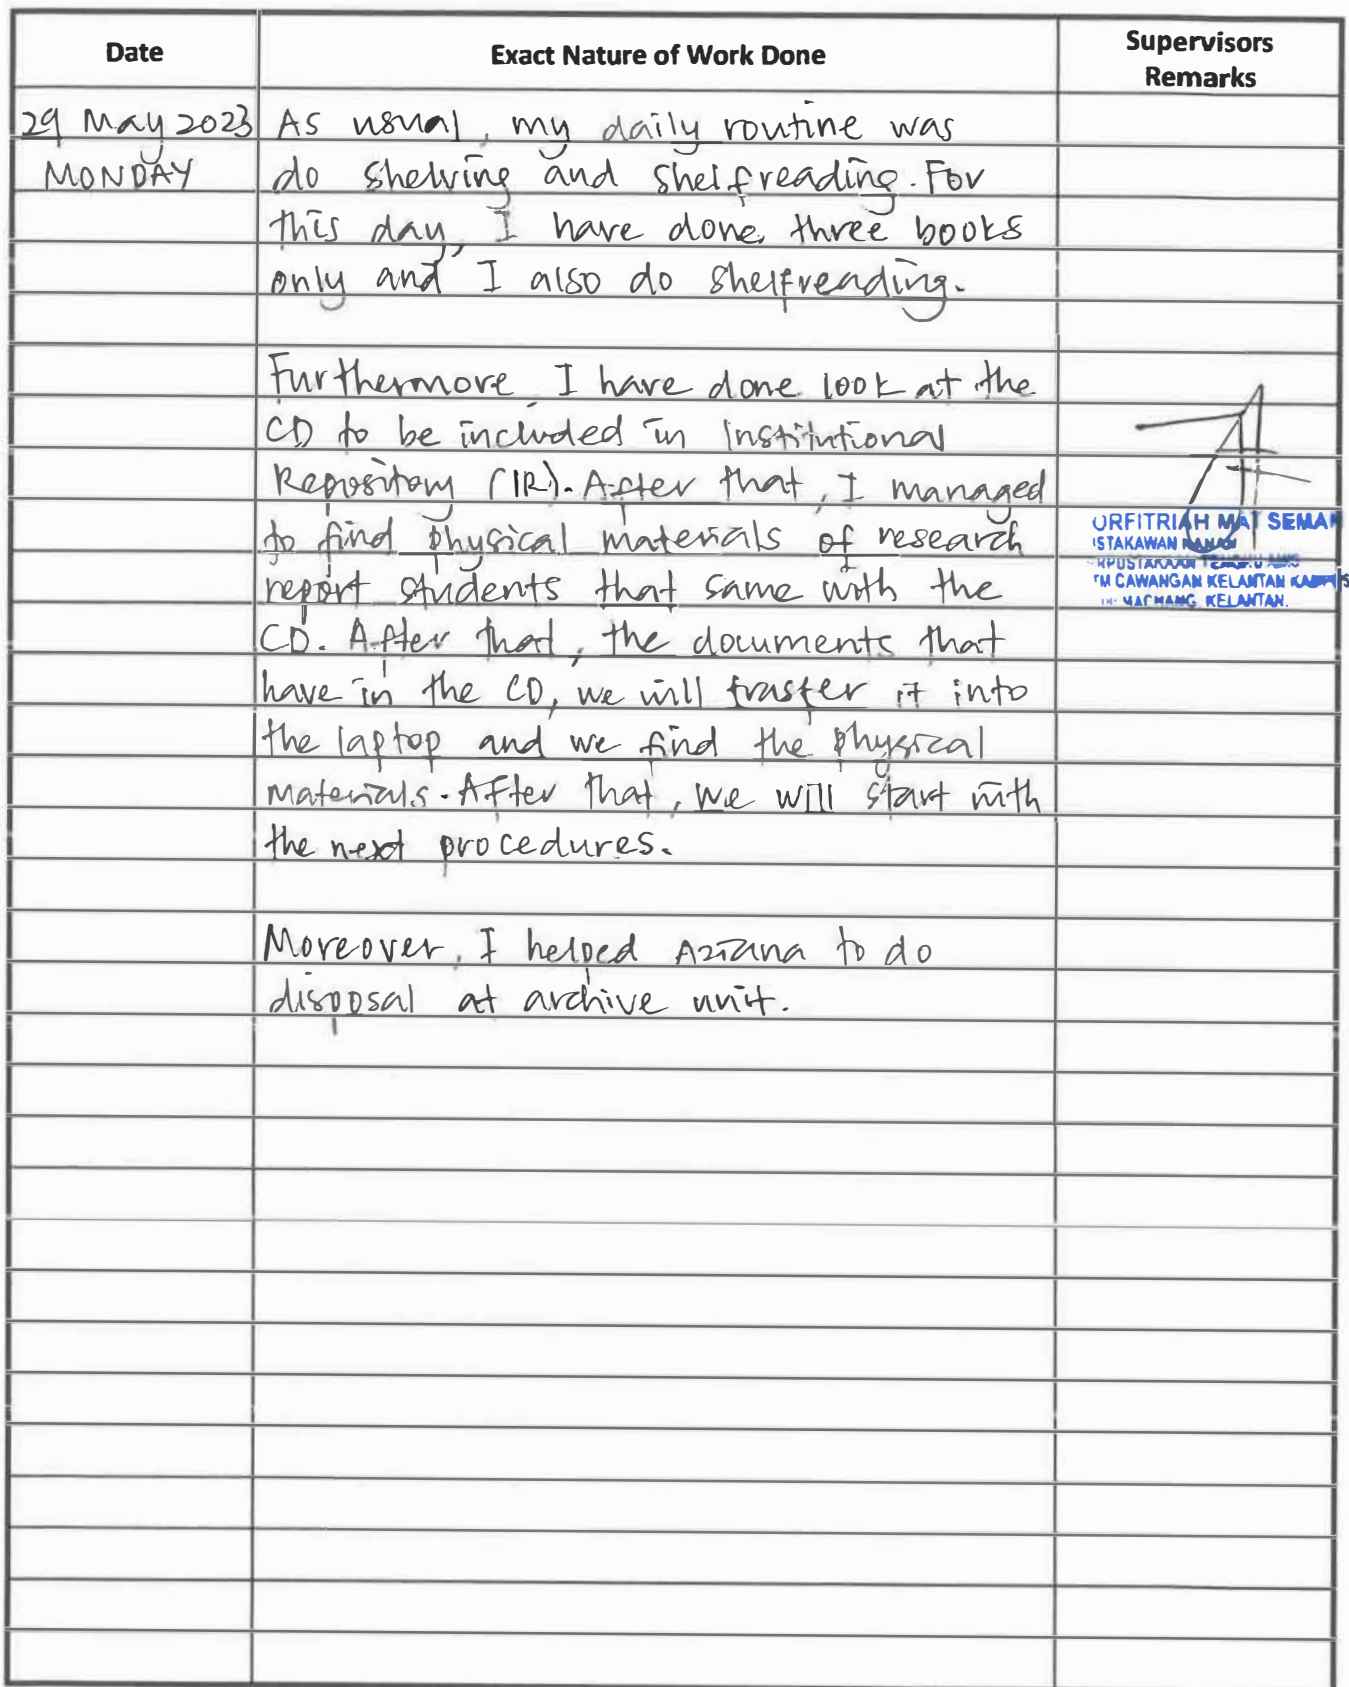 Date
Exact Nature of Work Done
Supervisors
Remarks
29 May 2023
MONDAY
As usual, my daily routine was
do shelving and shelfreading. For
this day, I have done three books
only and I also do shelfreading.
Furthermore, I have done look at the
CD to be included in Institutional
Repository (IR). After that, I managed
to find physical materials of research
report students that same with the
CD. After that, the documents that
have in the CD, we will trasfer it into
the laptop and we find the physical
materials. After that, we will start with
the next procedures.
Moreover, I helped Aziana to do
disposal at archive unit.
ORFITRIAH MAT SEMAN
ISTAKAWAN
CAWANGAN KELANTAN
MACHANG, KELANTAN.